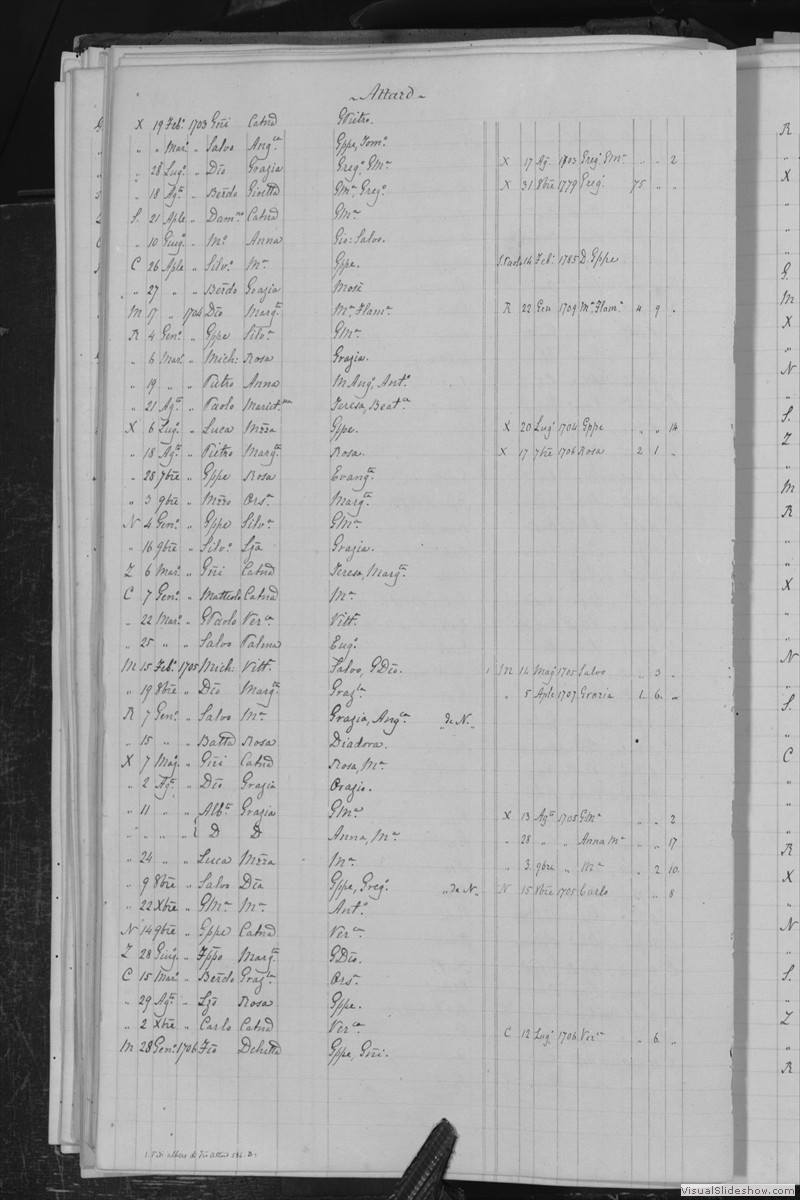 ~ Attard ~
X 19 Feb.o 1703 Gni Catnd GPietro.
„ „ Mar.o „ Salvo Ang.ca Gppe, Tom.o
„ 28 Lug.o „ Dio Grazia Greg.o GM.a X 17 Ag. 1703 Greg.o GM.a „ „ 2
„ 18 Ag. „ Berdo Gioetta GM.a Greg.o X 31 8bre 1779 Greg.o 75 „ „
S. 21 Aple „ Dam.no Catnd GM.a
„ 10 Giug.o „ M.o Anna Gio: Salvo.
C 26 Aple „ Silv.o M.a Gppe. 14 Feb.o 1785 D. Gppe
„ 27 „ „ Berdo Grazia Mosè
M 17 „ 1704 Dio Marg.ta M.a Flam.a R 22 Gen 1709 M.a Flam.a 4 9 „
R 4 Gen.o „ Gppe Silv.a GM.a
„ 6 Mar.o „ Mich: Rosa Grazia.
„ 19 „ „ Pietro Anna M Aug.o Ant.o
„ 21 Ag. „ Paolo Teresa, Beat.ca
X 6 Lug.o „ Luca Mzza Gppe. X 20 Lug.o 1704 Gppe „ „ 14
„ 18 Ag. „ Pietro Marg.ta Rosa. X 17 7bre 1706 Rosa 2 1 „
„ 28 7bre „ Gppe Rosa Evang.ta
„ 3 9bre „ Mzzo Ors.a Marg.ta
N 4 Gen.o „ Gppe Silv.a GM.a
„ 16 9bre „ Silv.o Lza Grazia.
Z 6 Mar.o „ Gni Catnd Teresa, Marg.ta
C 7 Gen.o „ Matteolo Catnd M.a
„ 22 Mar.o „ GPaolo Ver.ca Vitt.a
„ 25 „ „ Salvo Palma Eug.o
M 15 Feb.o 1705 Mich: Vitt.a Salvo, GDio. 1 M 14 Mag 1705 Salvo „ 3 „
„ 19 8bre „ Dio Marg.ta Graz.la „ 5 Aple 1707 Grazia 1 6 „
R 7 Gen.o „ Salvo M.a Grazia, Ang.ca „de N„
„ 15 „ „ Batta Rosa Diadora.
X 7 Mag. „ Gni Catnd Rosa, M.a
„ 2 Ag. „ Dio Grazia Orazio.
„ 11 „ „ Alb.to Grazia GM.a X 13 Ag. 1705 GM.a „ „ 2
„ „ „ „ { D D Anna, M.a „ 28 „ „ Anna M.a „ „ 17
„ 24 „ „ Luca Mzza M.a „ 3 9bre „ M.a „ 2 10
„ 9 8bre „ Salvo Dia Gppe, Greg.o „de N„ N 15 Xbre 1705 Carlo „ „ 8
„ 22 Xbre „ GM.a M.a Ant.o
N 14 9bre „ Gppe Catnd Ver.ca
Z 28 Giug.o „ Fppo Marg.ta GDio.
C 15 Mar.o „ Berdo Graz.la Ors.a
„ 29 Ag. „ Lzo Rosa Gppe.
„ 2 Xbre „ Carlo Catnd Ver.ca C 12 Lug.o 1706 Ver.ca „ 6 „
M 28 Gen.o 1706 Fio Delutta Gppe, Gni.
VisualSlideshow.com